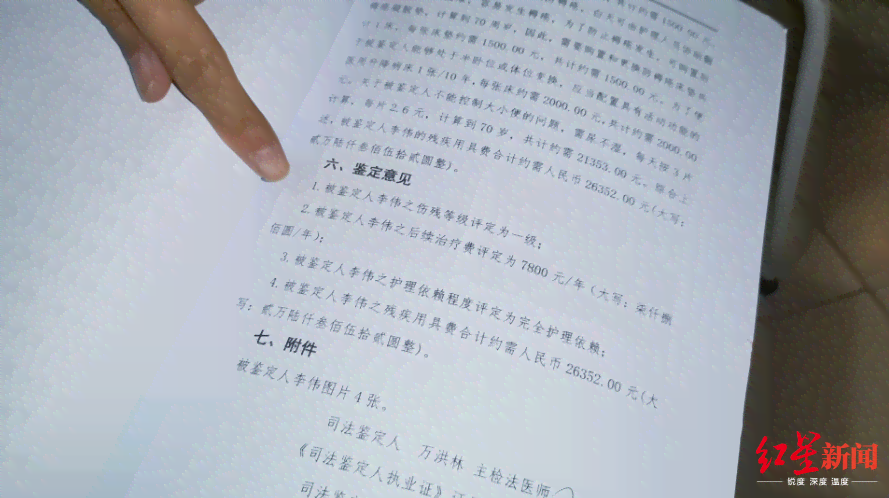 共计约需1500.00元。
容易发生褥疮，为了防止褥疮发生，可购置防
褥疮凝胶垫，计算到70周岁，因此，需要购置和更换防褥疮床垫共
计1床，每张床垫约需1500.00元，共计约需1500.00元。为了便
于被鉴定人能够处于半卧位或体位变换，应当配置具有活动功能的
医用升降病床1张/10年，每张床约需2000.00元，共计约需2000.00
元。关于被鉴定人不能控制大小便的问题，需尿不湿，每天按3片
计算，每片2.6元，计算到70岁，共计约需21353.00元。综合上
述，被鉴定人李伟的残疾用具费合计约需人民币26352.00元(大写：
贰万陆仟叁佰伍拾贰圆整)。
六、鉴定意见
1.被鉴定人李伟之伤残等级评定为一级；
2.被鉴定人李伟之后续治疗费评定为7800元/年（大写：柒仟捌
佰圆/年）；
3.被鉴定人李伟之护理依赖程度评定为完全护理依赖；
4.被鉴定人李伟之残疾用具费合计约需人民币26352.00元(大
写：贰万陆仟叁佰伍拾贰圆整)。
七、附件
被鉴定人李伟图片4张。
司法鉴定人 万洪林 主检法医师
《司法鉴定人执业证》证
司法鉴
红星新闻
锐度 深度 温度